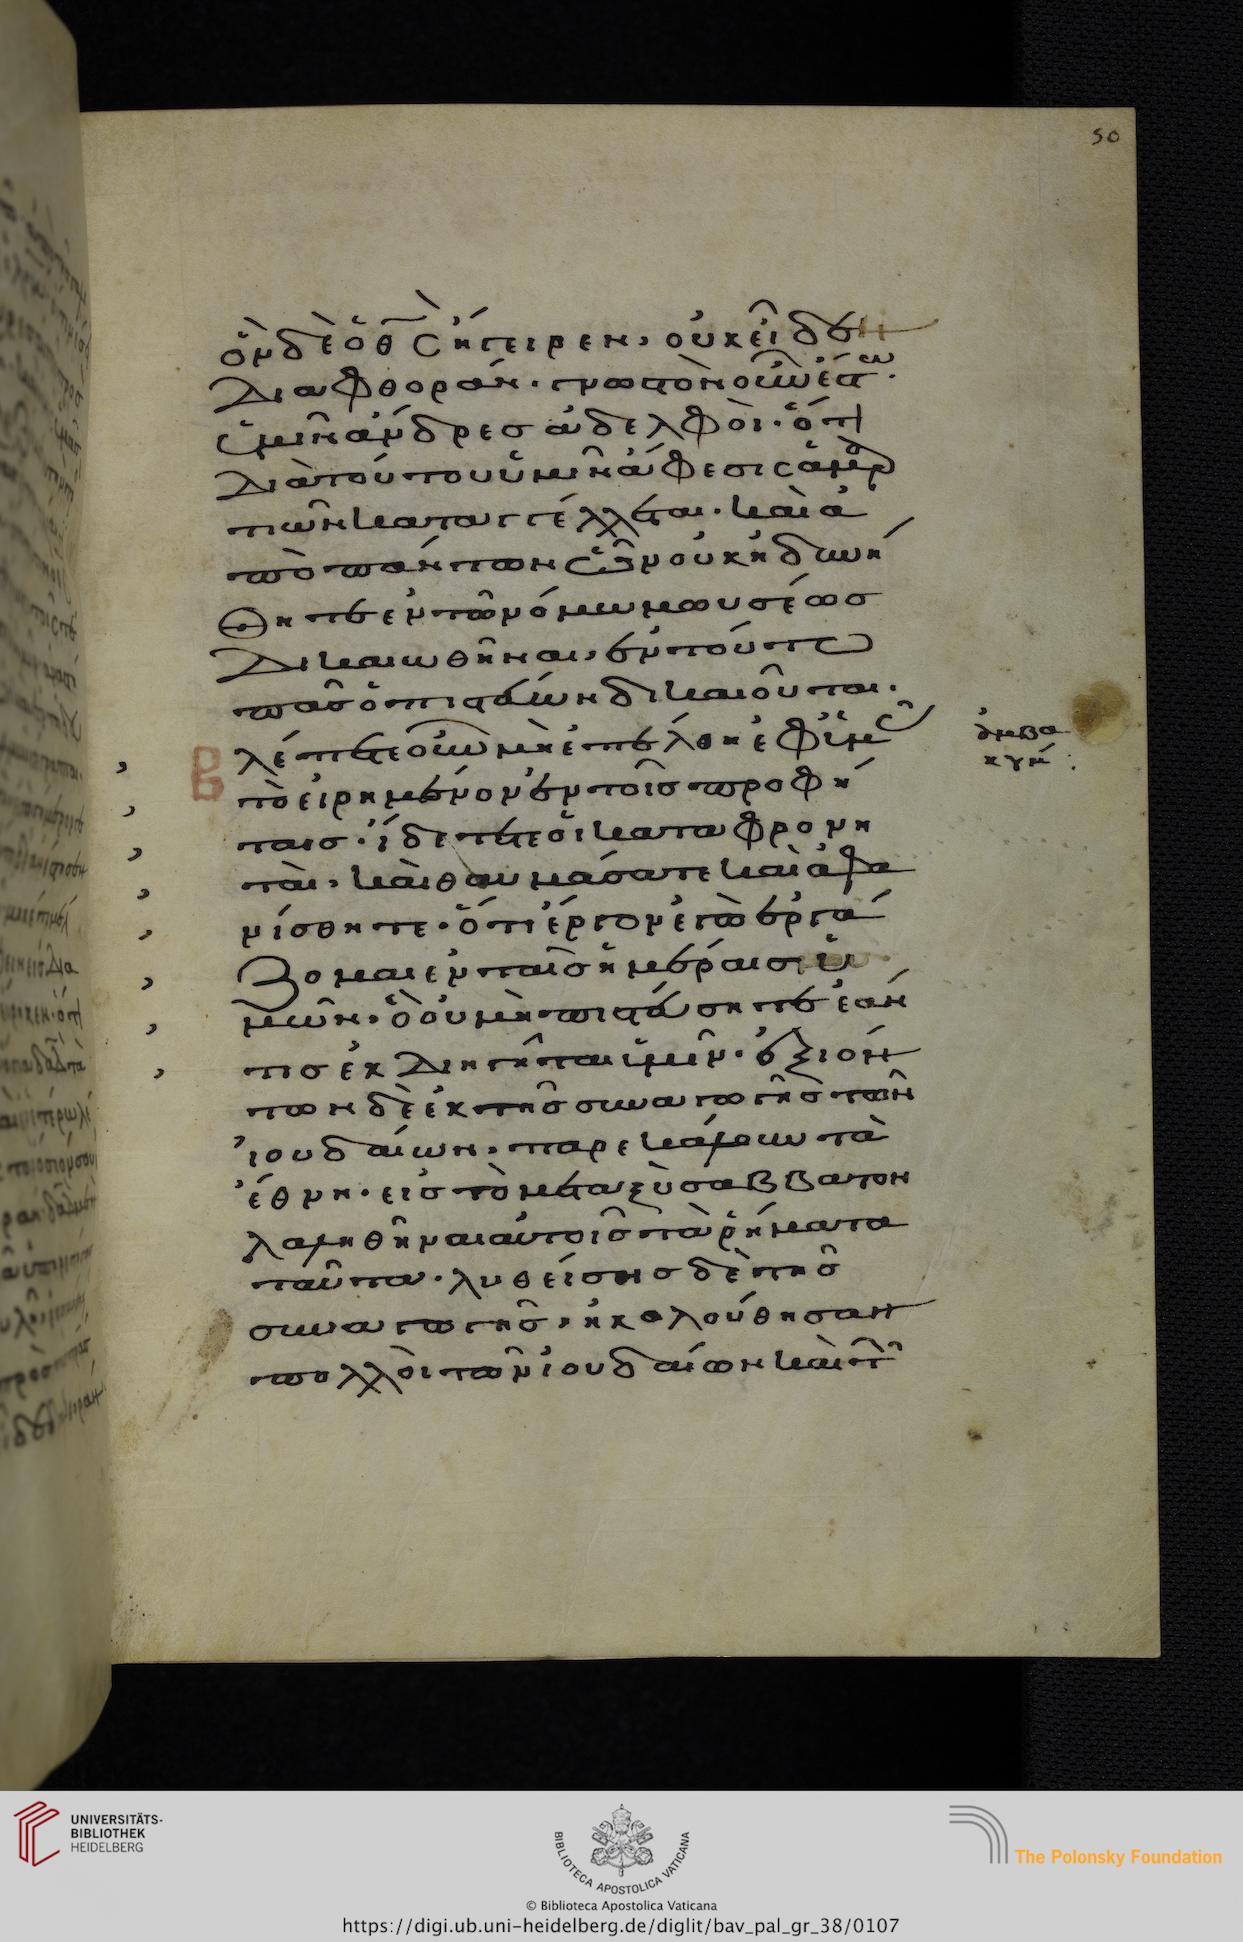 50
ὃν δὲ ὁ θς ἤγειρεν, οὐκ εἶδεν
διαφθοράν. γνωστὸν οὖν ἔστω
ὑμῖν ἄνδρες ἀδελφοὶ. ὅτι
διὰ τούτου ὑμῖν ἄφεσις ἁμαρ
τιῶν καταγγέλλεται. καὶ ἀ
πὸ πάντων ὧν οὐκ ἠδυνή
θητε ἐν τῶ νόμω μωυσέως
δικαιωθῆναι, ἐν τούτω
πᾶς ὁ πιστεύων δικαιοῦται.
βλέπετε οὖν μὴ ἐπέλθη ἐφ ὑμᾶς
τὸ εἰρημένον ἐν τοῖς προφή
ταις. ἴδετε οἱ καταφρονη
ταὶ, καὶ θαυμάσατε καὶ ἀφα
νίσθητε. ὅτι ἔργον ἐγὼ ἐργά
ζομαι ἐν ταῖς ἡμέραις ὑ
μῶν. ὃ οὐ μὴ πιστεύσητε ἐάν
τις ἐκδιηγῆται ὑμῖν. ἐξιόν
των δὲ ἐκ τῆς συναγωγῆς τῶν
ἰουδαίων, παρεκάλουν τὰ
ἔθνη. εἰς τὸ μεταξὺ σάββατον
λαληθῆναι αὐτοῖς τὰ ῥήματα
ταῦτα. λυθείσης δὲ τῆς
συναγωγῆς, ἠκολούθησαν
πολλοὶ τῶν ἰουδαίων καὶ τῶν
UNIVERSITÄTS-
BIBLIOTHEK
HEIDELBERG
BIBLIOTECA APOSTOLICA VATICANA
© Biblioteca Apostolica Vaticana
The Polonsky Foundation
https://digi.ub.uni-heidelberg.de/diglit/bav_pal_gr_38/0107